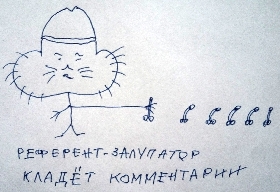 РЕФЕРЕНТ-ЗАЛУПАТОР
КЛАДЁТ КОММЕНТАРИИ